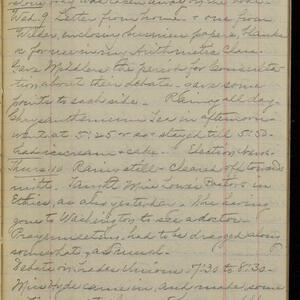 Wed. 9 Letter from home, & one from
enclosing business papers, blanks
& for review in Arithmetic Class.
Gave Middlers the period for consulta-
tion about their debate - gave some
points to each side. Rainy all day
Chrysanthemum Tea in afternoon
went at 5:25 or so & stayed till 5:50-
had icecream & cake. Election News.
Thurs. 10 Rainy still - cleared off towards
night. Taught Miss House Factors in
Ethics, as also yesterday. She having
gone to Washington to see a doctor.
Prayermeeting, had to be dragged along
somewhat, as usual.
Debate in Union 7:30 to 8:30-
Miss Hyde came in, and made some